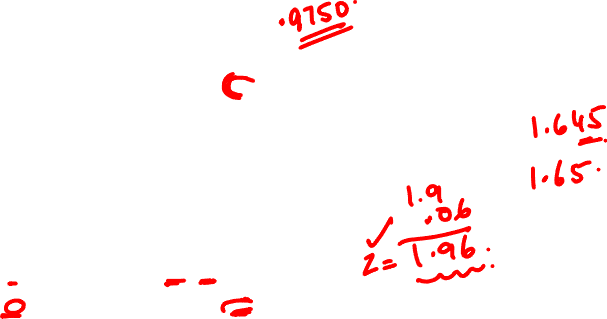 .9750.
1.645.
1.65.
1.9
.06
z = 1.96.